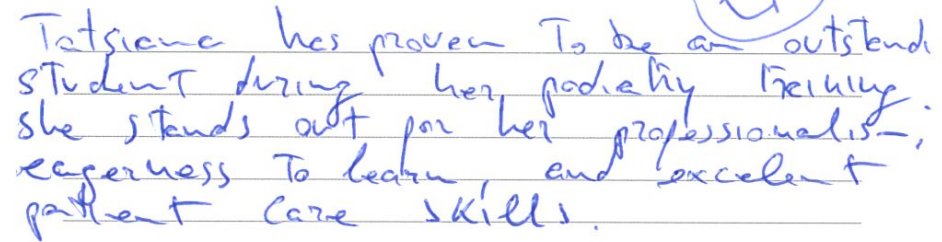 Tatsiana has proven to be an outstandi
student during her podiatry training.
she stands out for her professionalism,
eagerness to learn, and excelent
patient care skills.